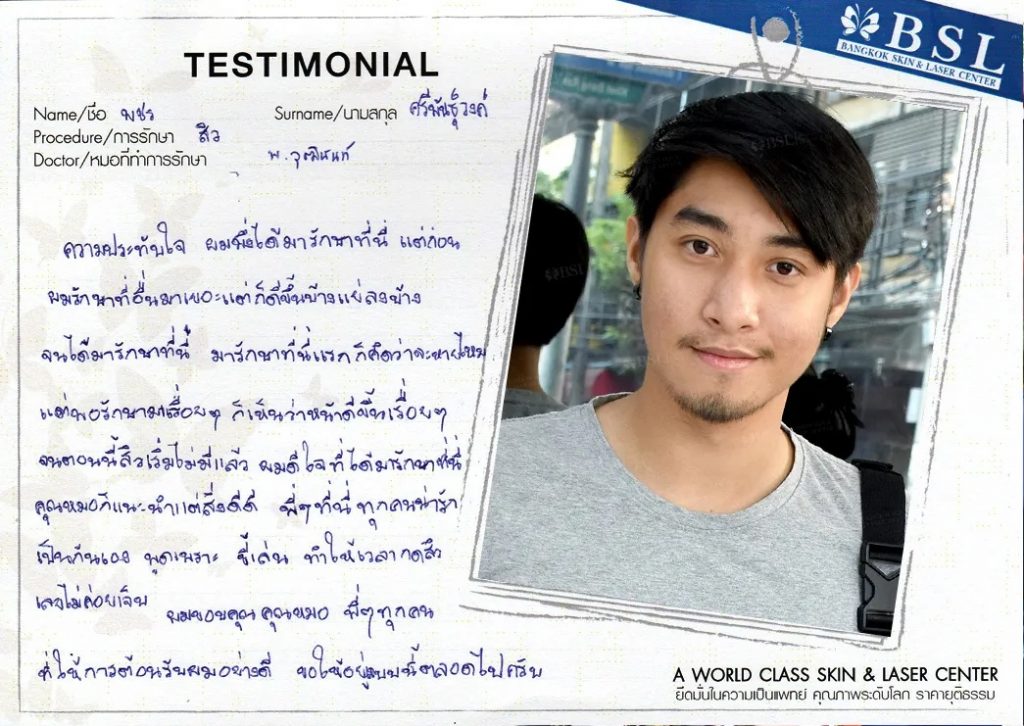 BSL
BANGKOK SKIN & LASER CENTER
TESTIMONIAL
Name/ชื่อ พชร Surname/นามสกุล ศรีพันธุ์วงศ์
Procedure/การรักษา สิว
Doctor/หมอที่ทำการรักษา พ.วุฒินันท์
ความประทับใจ ผมพึ่งได้มารักษาที่นี่ แต่ก่อน
ผมรักษาที่อื่นมาเยอะแต่ก็ดีขึ้นบ้างแย่ลงบ้าง
จนได้มารักษาที่นี่ มารักษาที่นี่แรกก็คิดว่าจะหายไหม
แต่พอรักษามาเรื่อยๆ ก็เห็นว่าหน้าดีขึ้นเรื่อยๆ
จนตอนนี้สิวเริ่มไม่มีแล้ว ผมดีใจที่ได้มารักษาที่นี่
คุณหมอก็แนะนำแต่สิ่งดีดี พี่ๆที่นี่ทุกคนน่ารัก
เป็นกันเอง พูดเพราะ ขี้เล่น ทำให้เวลากดสิว
เลยไม่ค่อยเจ็บ ผมขอบคุณคุณหมอ พี่ๆทุกคน
ที่ให้การต้อนรับผมอย่างดี ขอให้อยู่แบบนี้ตลอดไปครับ
A WORLD CLASS SKIN & LASER CENTER
ยึดมั่นในความเป็นแพทย์ คุณภาพระดับโลก ราคายุติธรรม